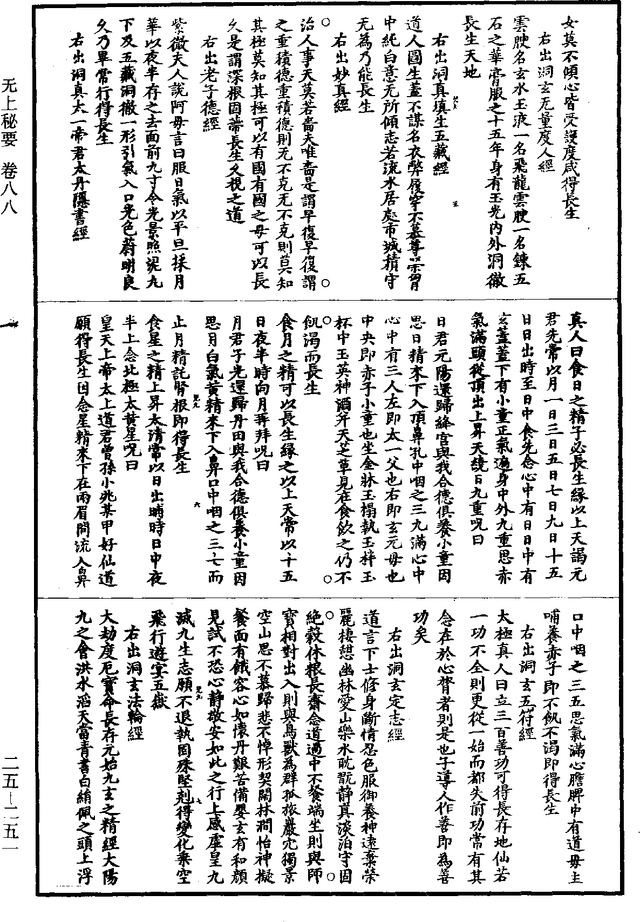 无上秘要 卷八八
二五—二五一
女莫不傾心皆受護度咸得長生
右出洞玄无量度人經
雲腴名玄水玉液一名飛龍雲腴一名鍊五
石之華膏服之十五年身有玉光内外洞徹
長生天地
右出洞真填生五藏經
道人圖生蓋不謀名衣弊履穿不慕尊崇胷
中純白意无所傾志若流水居處市城積守
无為乃能長生
右出妙真經
治人事天莫若嗇夫唯嗇是謂早復早復謂
之重積德重積德則无不克无不克則莫知
其極莫知其極可以有國有國之母可以長
久是謂深根固蔕長生久視之道
右出老子德經
紫微夫人說阿母言曰服日氣以平旦採月
華以夜半存之去面前九寸令光景照泥九
下及五藏洞徹一形引氣入口光色蔚明良
久乃畢常行得長生
右出洞真太一帝君太丹隱書經
真人曰食日之精子必長生緣以上天謁元
君先常以月一日三日五日七日九日十五
日日出時至日中食先念心中有日日中有
玄蓋蓋下有小童正氣遍身中外九重思赤
氣滿頭從頂出上昇天繞日九重呪曰
日君元陽還歸絳宫與我合德俱養小童因
思日精來下入頂鼻孔中咽之三九滿心中
心中有三人左即太一父也右即玄元母也
中央即赤子小童也坐金牀玉榻執玉拜玉
杯中玉英神酒斧天芝草見在食飲之仍不
飢渴而長生
食月之精可以長生緣之以上天常以十五
日夜半時向月再拜呪曰
月君子光還歸丹田與我合德俱養小童因
思月白氣黄精來下入鼻口中咽之三七而
止月精託腎根即得長生
食星之精上昇太清常以日出晡時日中夜
半上念北極太黄星呪曰
皇天上帝太上道君曾孫小兆某甲好仙道
願得長生因念星精來下在兩眉間流入鼻
口中咽之三五思氣滿心膽脾中有道母主
哺養赤子即不飢不渴即得長生
右出洞玄五符經
太極真人曰立三百善功可得長存地仙若
一功不全則更從一始而都失前功常有其
念在於心胷者則是也子導人作善即為善
功矣
右出洞玄定志經
道言下士修身斷情忍色服御養神遠棄榮
麗棲憩幽林愛山樂水躭翫靜真淡泊守固
絶穀休粮長齋念道過中不餐端坐則與師
寶相對出入則與鳥獸為群孤旅巖穴獨景
空山思不慕歸悲不悼形契闊林澗怡神擬
餐面有餓容心如懷丹艱苦備嬰玄有和顔
見試不恐心靜敬安如此之行上感虚皇九
滅九生志願不退執固殊堅剋得變化乘空
飛行遊宴五嶽
右出洞玄法輪經
大劫度厄寶命長存元始九玄之精經大陽
九之會洪水滔天當青書白絹佩之頭上浮